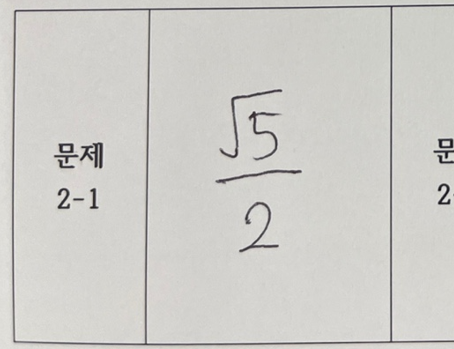 문제
2-1
√5
2
문
2-